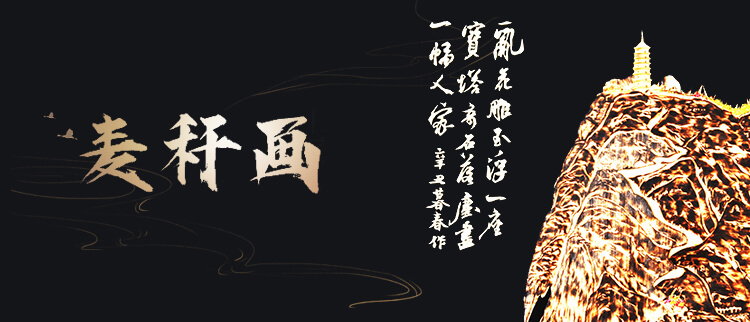 麦秆画
亂花雕玉浮一座
寶塔奇石廬畫
一幅人家 辛丑暮春作